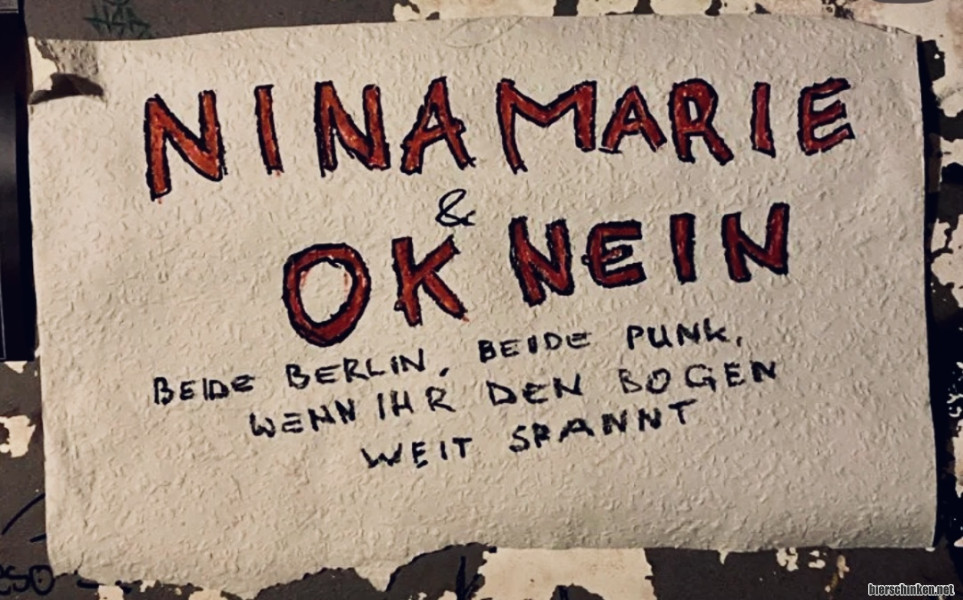 NINAMARIE
&
OK NEIN
BEIDE BERLIN, BEIDE PUNK,
WENN IHR DEN BOGEN
WEIT SPANNT
bierschinken.net